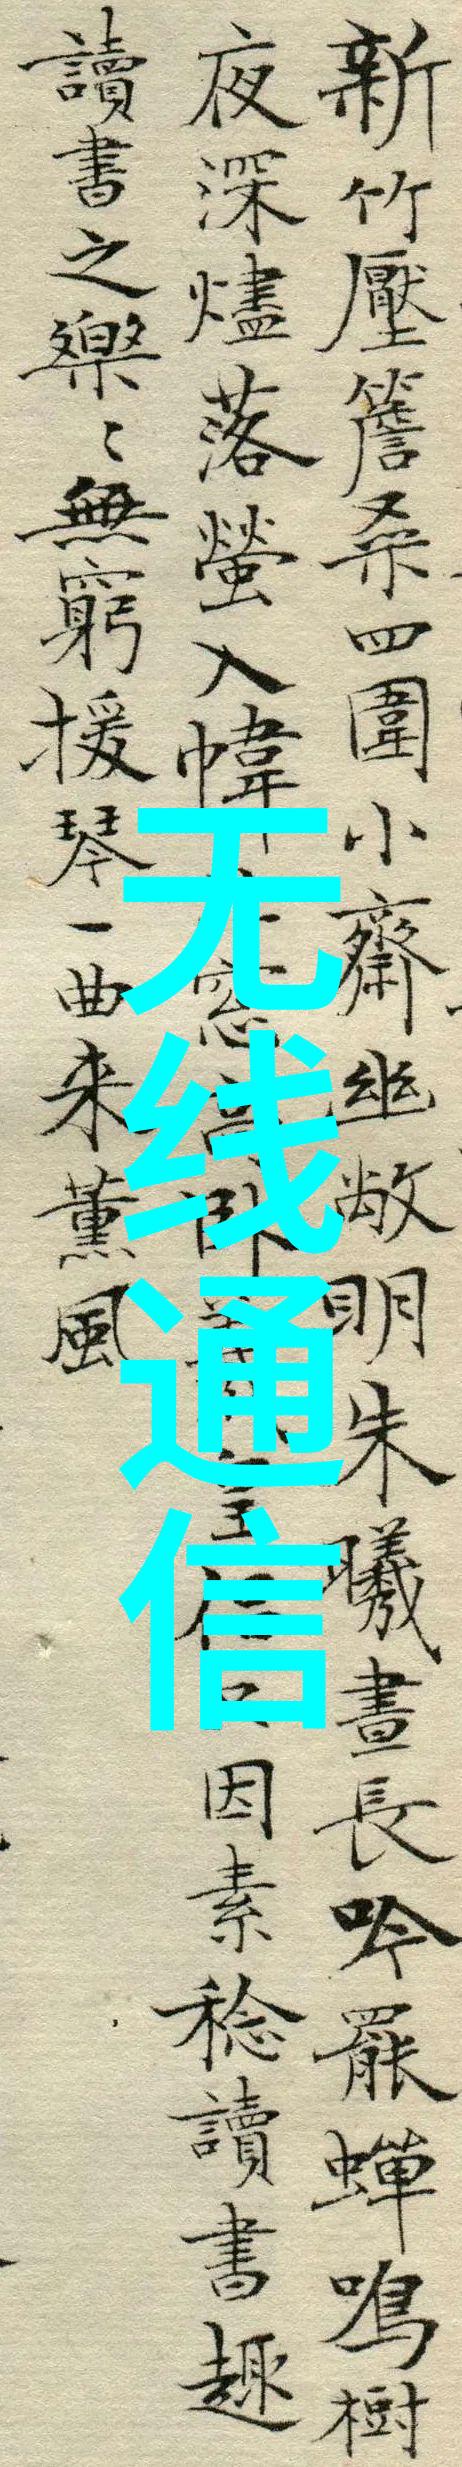 新竹壓簷桑四圍小齋幽敞明朱曦晝長吟罷蟬鳴樹
夜深燼落螢入幃窓高卧羲皇侶因素稔讀書趣
讀書之樂〻無窮援琴一曲来薰風
无线通信